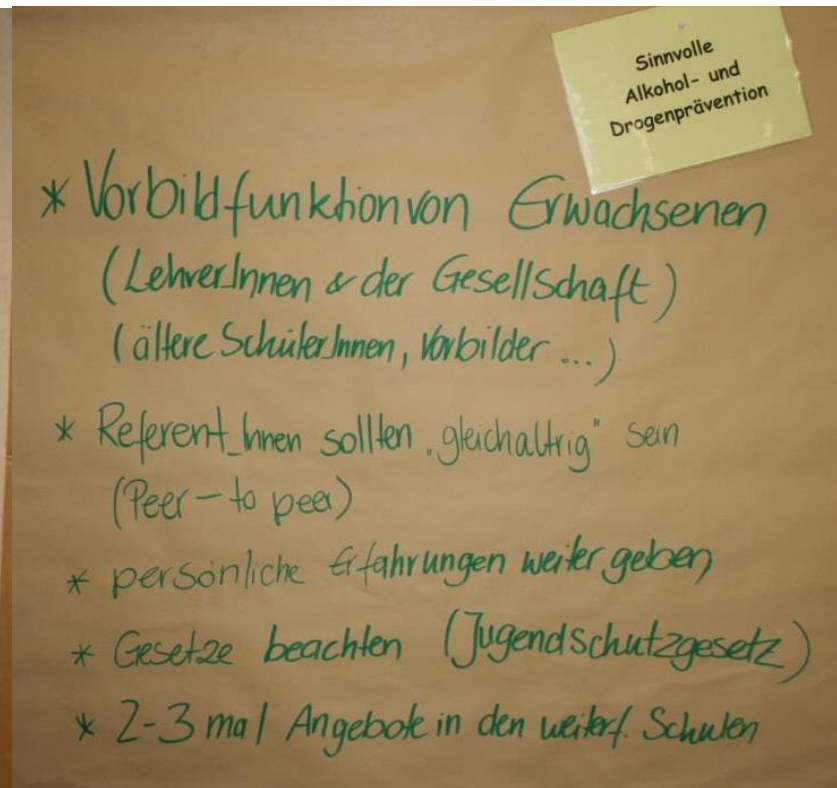 Sinnvolle
Alkohol- und
Drogenprävention
* Vorbildfunktion von Erwachsenen
(Lehrer_Innen & der Gesellschaft)
(ältere Schüler_Innen, Vorbilder ...)
* Referent_Innen sollten „gleichaltrig" sein
(Peer - to peer)
* persönliche Erfahrungen weiter geben
* Gesetze beachten (Jugendschutzgesetz)
* 2-3 mal Angebote in den weiterf. Schulen